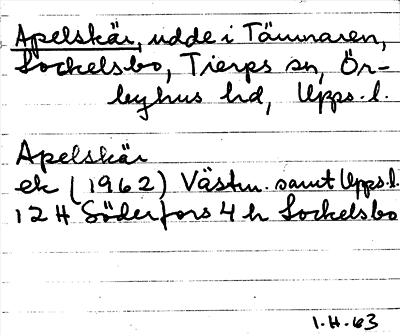 Apelskär, udde i Tämnaren,
Sockelsbo, Tierps sn, Ör-
byhus hd, Upps. l.
Apelskär
ek (1962) Västm. samt Upps. l.
12 H Söderfors 4 h Sockelsbo
1.H.63